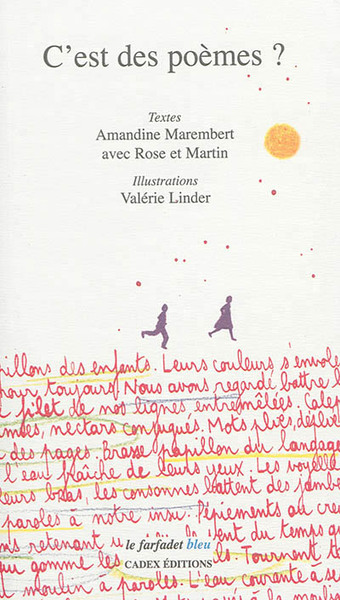 C'est des poèmes ?
Textes
Amandine Marembert
avec Rose et Martin
Illustrations
Valérie Linder
pillons des enfants. Leurs couleurs s'envole
toujours. Nous avons regardé battre l
filet de nos lignes entremêlées. Cale
nectars conjugués. Mots
des pages. Brasse papillon du langage
l'eau fraîche de leurs yeux. Les voyell
leurs bras, les consonnes battent des jambe
paroles à notre insu. Pépiements au cre
ns retenant u ent du temps qu
au gomme les ls. Tournent t
moulin à paroles. L'eau courante à se
le farfadet bleu
CADEX ÉDITIONS